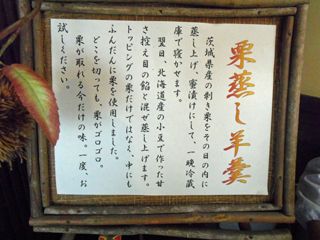 栗蒸し羊羹
茨城県産の剥き栗をその日の内に
蒸し上げ、蜜漬けにして、一晩冷蔵
庫で寝かせます。
翌日、北海道産の小豆で作った甘
さ控え目の餡と混ぜ蒸し上げます。
トッピングの栗だけではなく、中にも
ふんだんに栗を使用しました。
どこを切っても、栗がゴロゴロ。
栗が取れる今だけの味。一度、お
試しください。